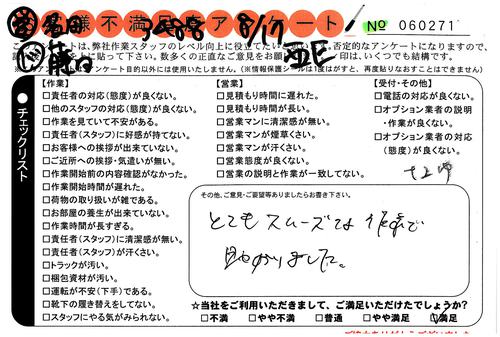 お客様不満足アンケート
8/17
No 060271
このアンケートは、弊社作業スタッフのレベル向上に役立てたい
否定的なアンケートになりますので、
に貼って下さい。数多くの正直なご意見をお願
印は、いくつでも結構です。
チェックリスト
【作業】
□責任者の対応(態度)が良くない。
□他のスタッフの対応(態度)が良くない。
□作業を見ていて不安がある。
□責任者(スタッフ)に好感が持てない。
□お客様への挨拶が出来ていない。
□ご近所への挨拶・気遣いが無い。
□作業開始前の内容確認がなかった。
□作業開始時間が遅れた。
□荷物の取り扱いが雑である。
□お部屋の養生が出来ていない。
□作業時間が長すぎる。
□責任者(スタッフ)に清潔感が無い。
□責任者(スタッフ)が汗くさい。
□トラックが汚い。
□梱包資材が汚い。
□運転が不安(下手)である。
□靴下の履き替えをしてない。
□スタッフにやる気がみられない。
【営業】
□見積もり時間に遅れた。
□見積もり時間が長い。
□営業マンに清潔感が無い。
□営業マンが煙草くさい。
□営業マンが汗くさい。
□営業態度が良くない。
□営業の説明と作業が一致してない。
【受付・その他】
□電話の対応が良くない。
□オプション業者の説明
・作業が良くない。
□オプション業者の対応
(態度)が良くない。
その他、ご意見・ご要望等ありましたらお書き下さい。
とてもスムーズな作業で
助かりました。
☆当社をご利用いただきまして、ご満足いただけたでしょうか?
□不満 □やや不満 □普通 □やや満足 ☑満足